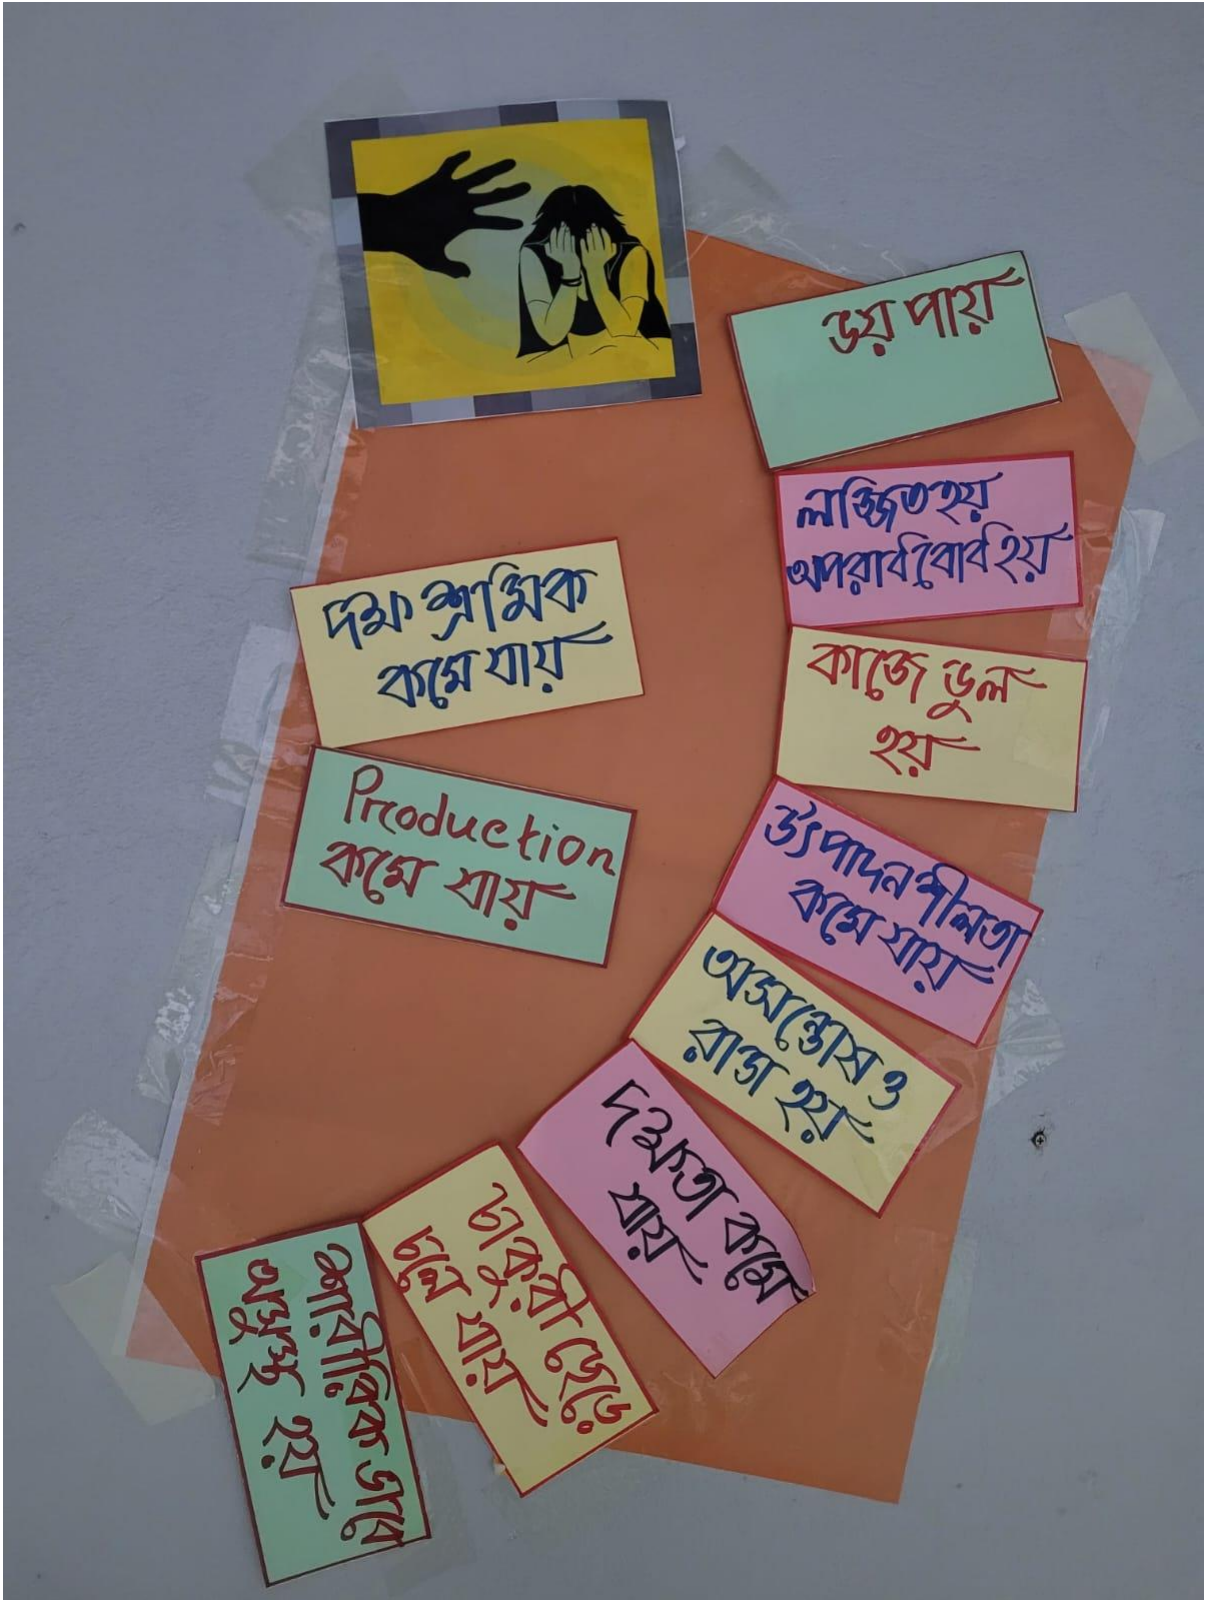 ভয় পায়
লজ্জিত হয়
অপরাধ বোধ হয়
কাজে ভুল
হয়
উৎপাদনশীলতা
কমে যায়
অসন্তোষ ও
রাগ হয়
দক্ষতা কমে
যায়
চাকুরী ছেড়ে
চলে যায়
শারীরিক ভাবে
অসুস্থ হয়
দক্ষ শ্রমিক
কমে যায়
Production
কমে যায়